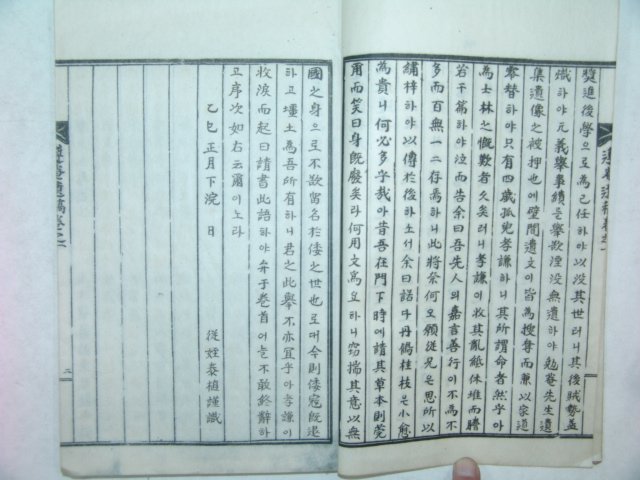 奬進後學으로為己任하야以沒其世러니其後賊勢孟
熾하야元義擧事績是擧歎湮沒無遺하야勉菴先生遺
集遺像之被押也에壁間遺文이皆為搜奪而兼以家道
零替하야只有四歲孤兒孝謙하니其所謂命者然乎아
為士林之慨歎者久矣러니孝謙이收其亂紙休堆而謄
若干篇하야泣而告余曰吾先人의嘉言善行이不為不
多而百無一二存焉하니此將柰何오願從兄은思所以
繡梓하야以傳於後하소서余曰諾다丹鶴桂枝은小愈
為貴니何必多乎哉아昔吾在門下時에請其草本則莞
爾而笑曰身既廢矣라何用文為오하니竊揣其意以無
國之身으로不欲留名於倭之世也로대今則倭寇既退
하고壃土為吾所有하니君之此擧不亦宜乎아孝謙이
收淚而起曰請書此語하야弁于卷首어늘不敢終辭하
고序次如右云爾이노라
乙巳正月下浣日
從姪泰植謹識
遺稿卷之一
二